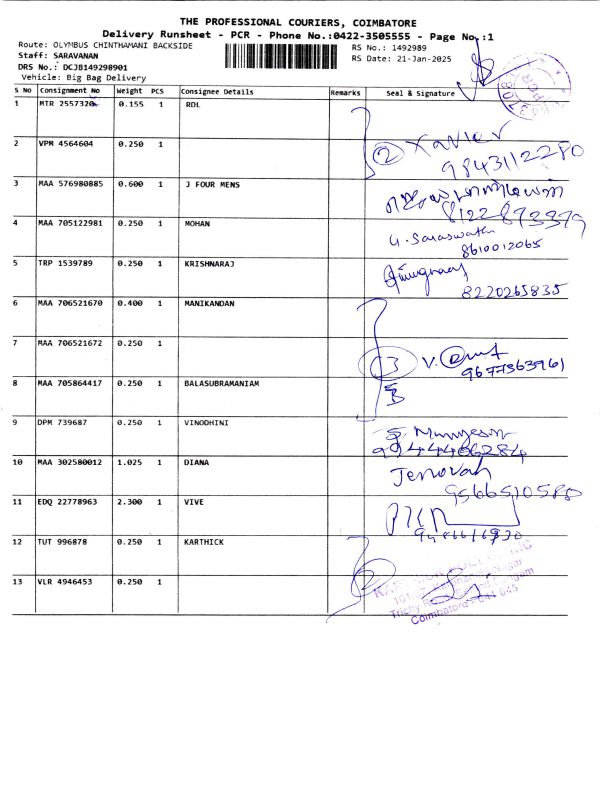 THE PROFESSIONAL COURIERS, COIMBATORE
Delivery Runsheet - PCR - Phone No.:0422-3505555 - Page No.:1
Route: OLYMBUS CHINTHAMANI BACKSIDE
RS No.: 1492989
Staff: SARAVANAN
RS Date: 21-Jan-2025
DRS No.: DCJB149298901
Vehicle: Big Bag Delivery
S No Consignment No Weight PCS Consignee Details Remarks Seal & Signature
1 MTR 2557320 0.155 1 RDL
2 VPM 4564604 0.250 1
2 Xavier
9843112280
3 MAA 576980885 0.600 1 J FOUR MENS
8122873379
4 MAA 705122981 0.250 1 MOHAN
G. Saraswathi
8610012065
5 TRP 1539789 0.250 1 KRISHNARAJ
8220265835
6 MAA 706521670 0.400 1 MANIKANDAN
7 MAA 706521672 0.250 1
3 V.
9677363961
8 MAA 705864417 0.250 1 BALASUBRAMANIAM
9 DPM 739687 0.250 1 VINODHINI
S. Murugesan
9944406284
10 MAA 302580012 1.025 1 DIANA
Jenovah
9566510580
11 EDQ 22778963 2.300 1 VIVE
12 TUT 996878 0.250 1 KARTHICK
13 VLR 4946453 0.250 1
Coimbatore - 641 045